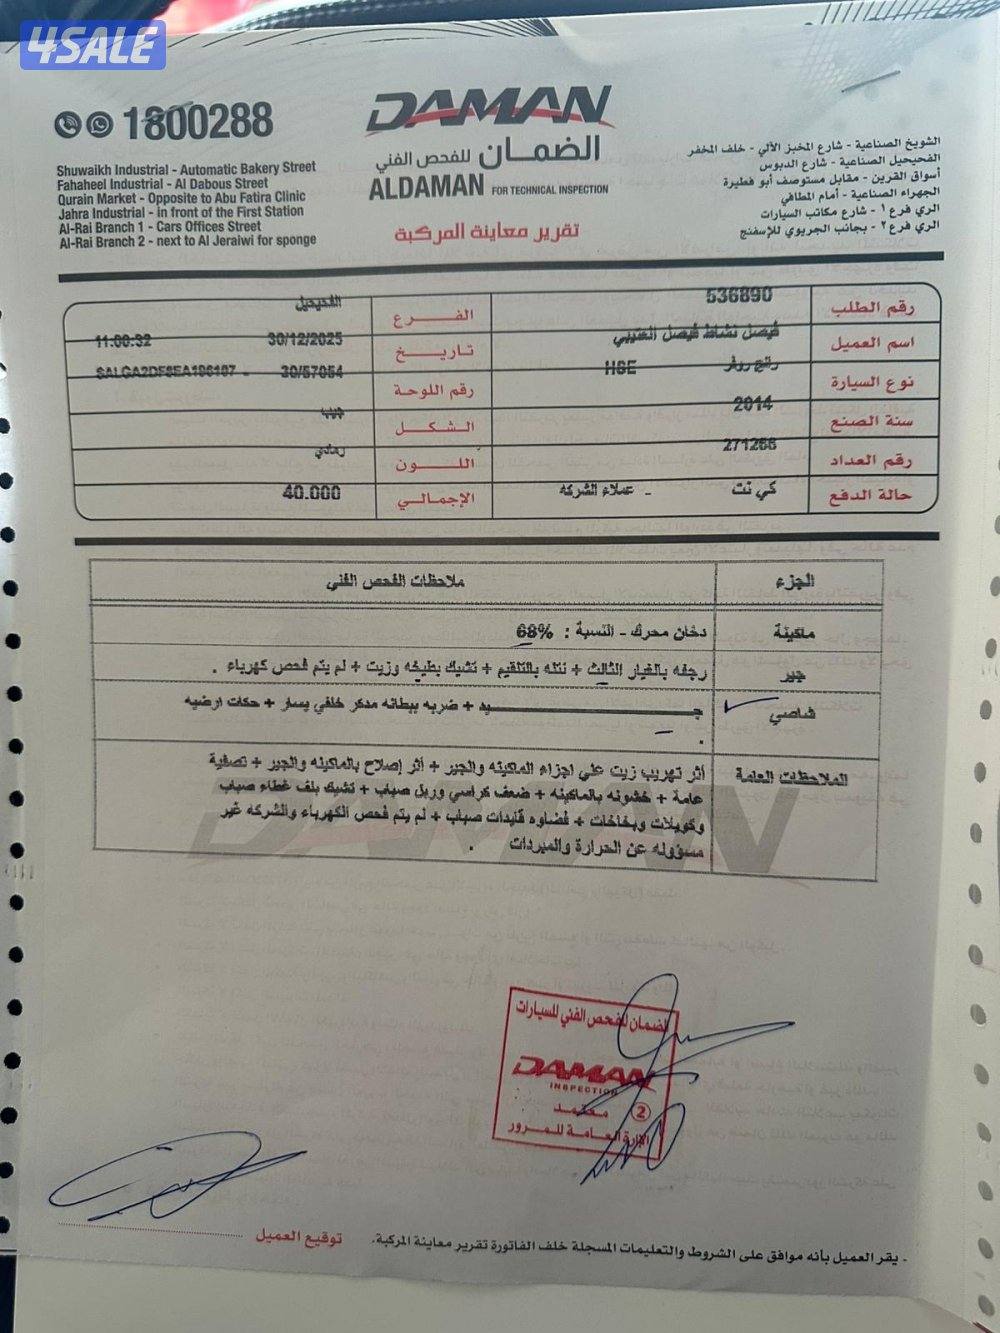 4SALE
1800288
Shuwaikh Industrial - Automatic Bakery Street
Fahaheel Industrial - Al Dabous Street
Qurain Market - Opposite to Abu Fatira Clinic
Jahra Industrial - in front of the First Station
Al-Rai Branch 1 - Cars Offices Street
Al-Rai Branch 2 - next to Al Jeraiwi for sponge
DAMAN
الضمان للفحص الفني
ALDAMAN FOR TECHNICAL INSPECTION
تقرير معاينة المركبة
الشويخ الصناعية - شارع المخبز الآلي - خلف المخفر
الفحيحيل الصناعية - شارع الدبوس
أسواق القرين - مقابل مستوصف أبو فطيرة
الجهراء الصناعية - أمام المطافي
الري فرع ١ - شارع مكاتب السيارات
الري فرع ٢ - بجانب الجريوي للإسفنج
رقم الطلب 536890 الفرع الفحيحيل
اسم العميل فيصل نشاط فيصل العتيبي تاريخ 30/12/2025 11:00:32
نوع السيارة رنج روفر HSE رقم اللوحة 30/57054 -
سنة الصنع 2014 الشكل جيب
رقم العداد 271266 اللون رمادي
حالة الدفع كي نت - عملاء الشركه الإجمالي 40.000
الجزء ملاحظات الفحص الفني
ماكينة دخان محرك - النسبة : 68%
جير رجفه بالغيار الثالث + نتله بالتلقيم + تشيك بطيخه وزيت + لم يتم فحص كهرباء .
شاصي جـــيد + ضربه ببطانه مدكر خلفي يسار + حكات ارضيه
.
الملاحظات العامة أثر تهريب زيت علي اجزاء الماكينه والجير + أثر إصلاح بالماكينه والجير + تصفية
عامة + خشونه بالماكينه + ضعف كراسي وربل صباب + تشيك بلف غطاء صباب
وكويلات وبخاخات + فضاوه قايدات صباب + لم يتم فحص الكهرباء والشركه غير
مسؤوله عن الحرارة والمبردات .
الضمان للفحص الفني للسيارات
DAMAN
INSPECTION
معتمد 2
الإدارة العامة للمرور
توقيع العميل
- يقر العميل بأنه موافق على الشروط والتعليمات المسجلة خلف الفاتورة تقرير معاينة المركبة.